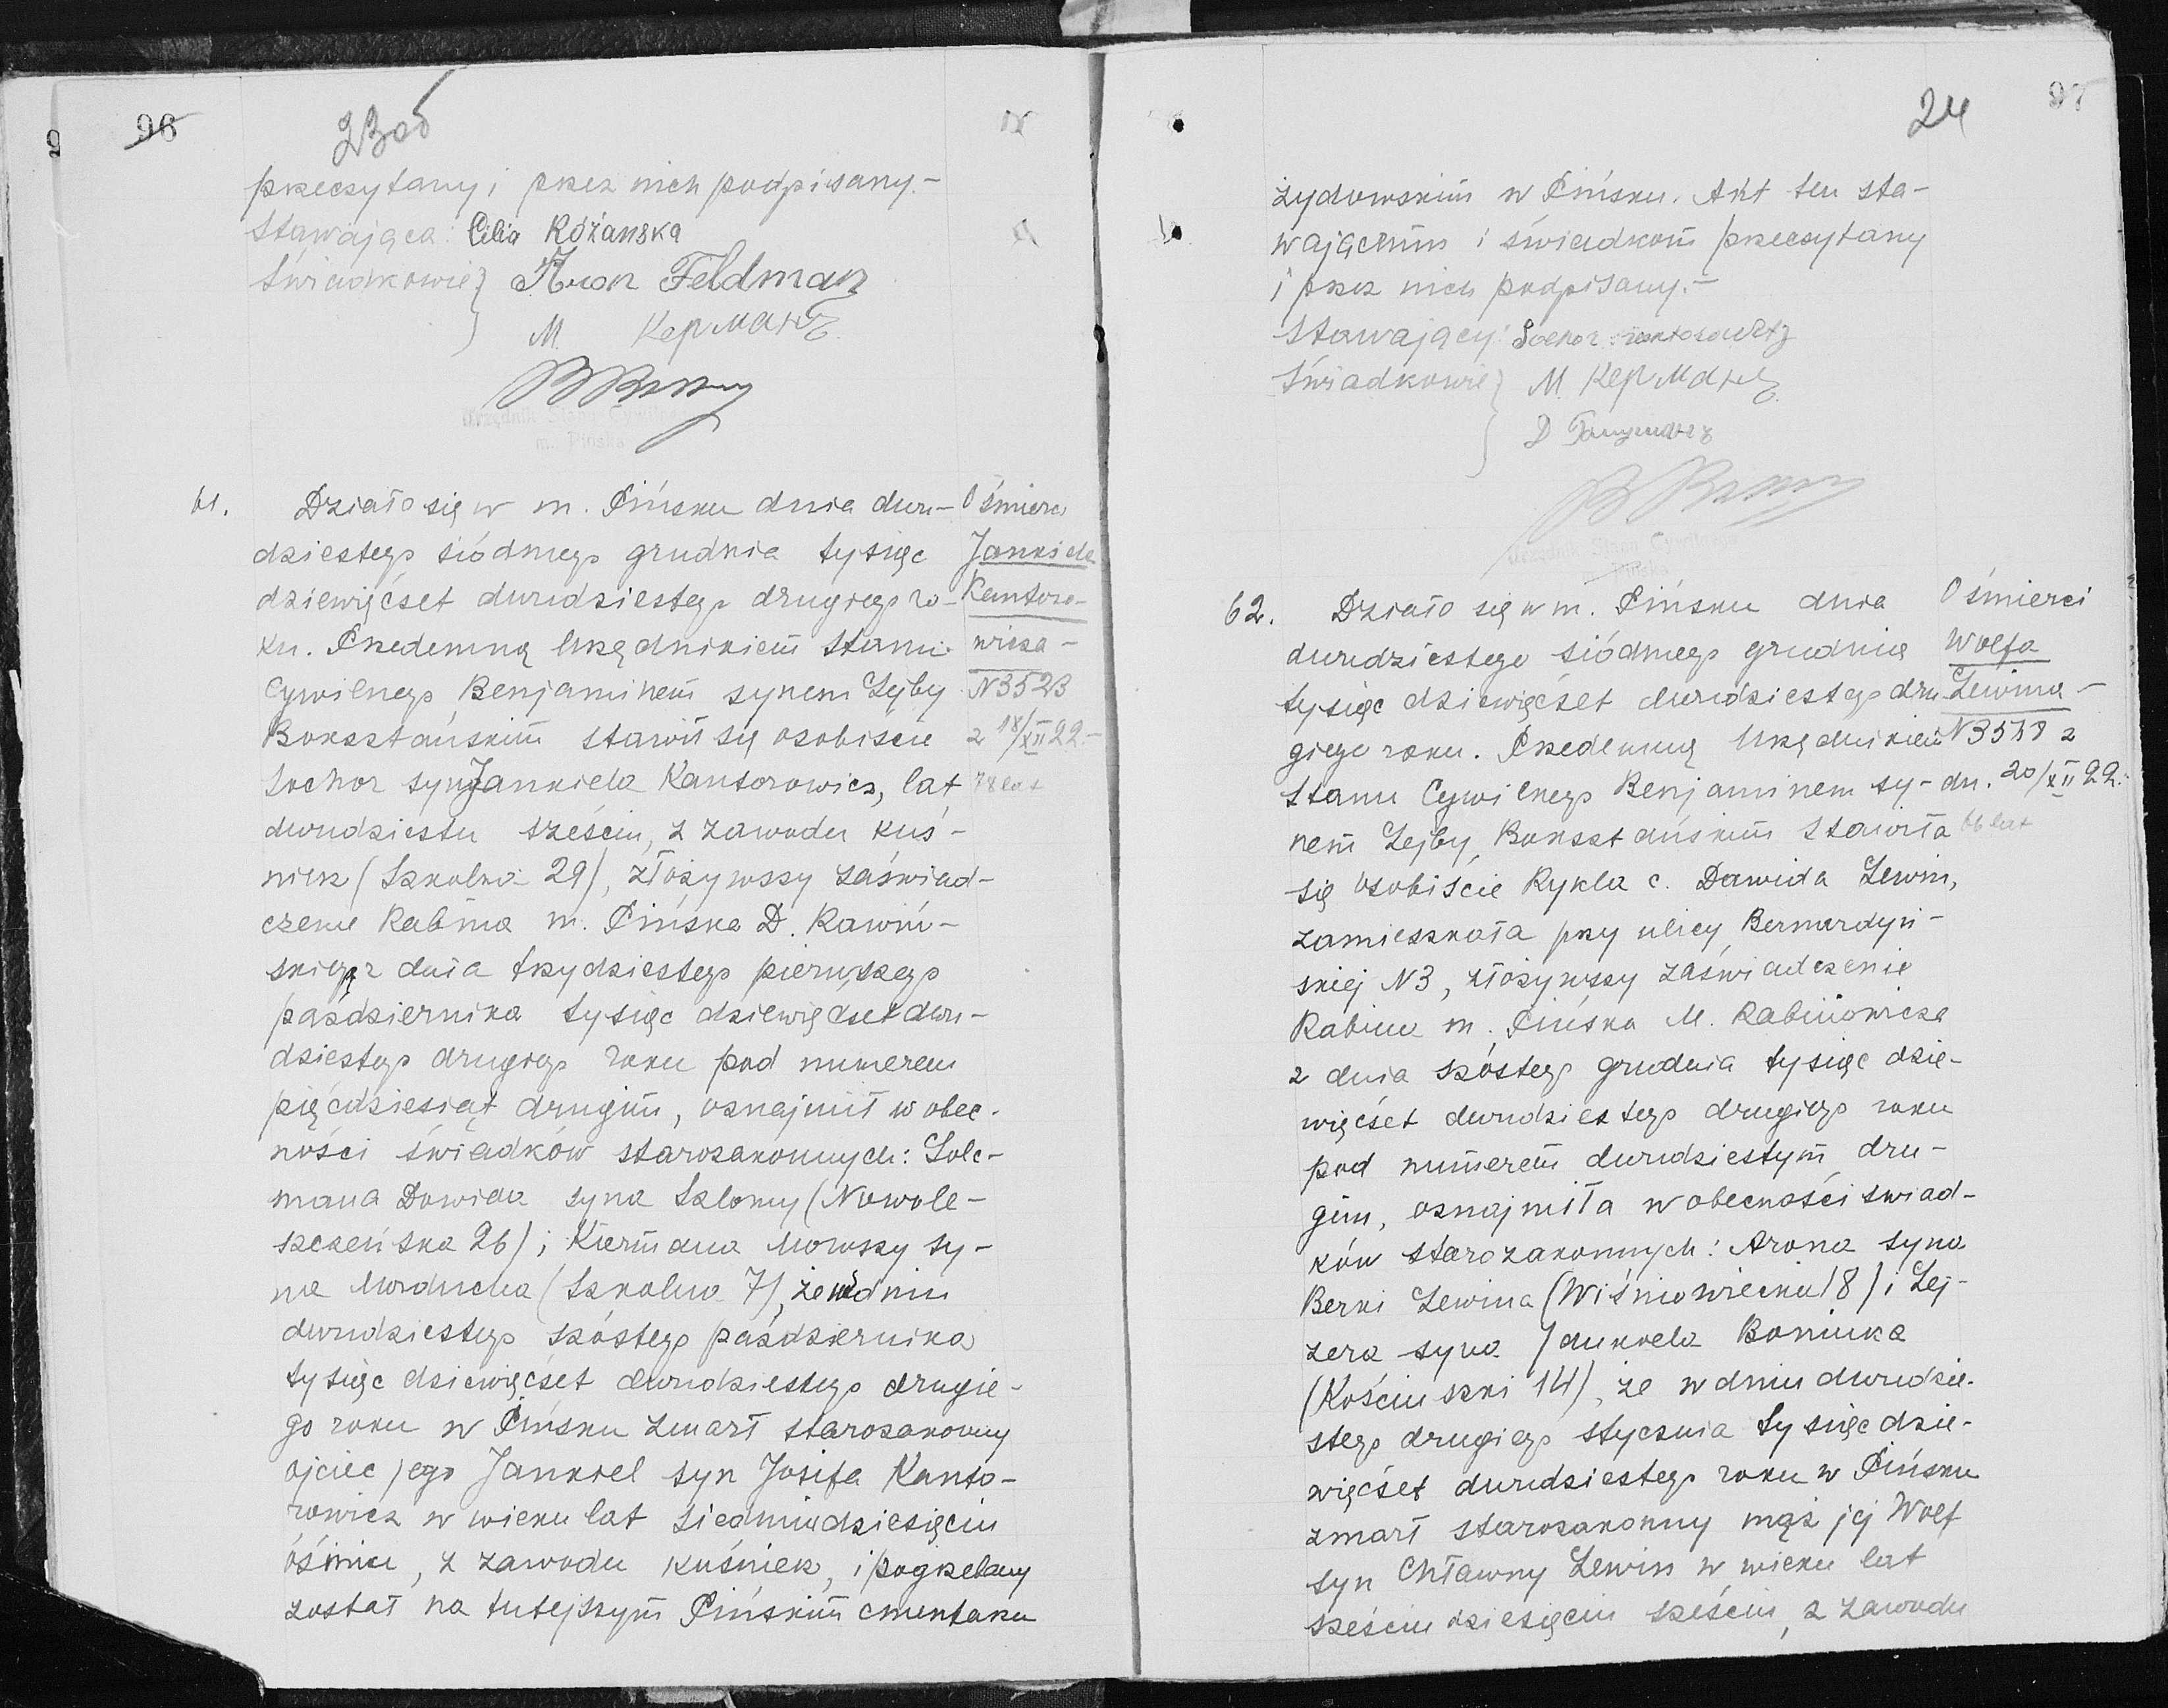 96
23 об
przeczytany i przez nich podpisany.-
Stawająca: Cilia Różanska
Świadkowie} Aron Feldman
M. Керманъ
Urzędnik Stanu Cywilnego
m. Pińska
61. Działo się w m. Pińsku dnia dwu-
dziestego siódmego grudnia tysiąc
dziewięćset dwudziestego drugiego ro-
ku. Przedemną Urzędnikiem Stanu
Cywilnego Benjaminem synem Lejby
Boksztańskim stawił się osobiście
Sochor syn Jankiela Kantorowicz, lat
dwudziestu sześciu, z zawodu kuś-
nierz (Szkolna 29), złożywszy zaświad-
czenie Rabina m. Pińska D. Rawin-
skiego z dnia trzydziestego pierwszego
października tysiąc dziewięćset dwu-
dziestego drugiego roku pod numerem
pięćdziesiąt drugim, oznajmił w obec-
ności świadków starozakonnych: Sole-
mana Dowida syna Szlomy (Nowole-
szczeńska 26) i Kiermana Mowszy sy-
na Morducha (Szkolna 7), że w dniu
dwudziestego szóstego października
tysiąc dziewięćset dwudziestego drugie-
go roku w Pińsku zmarł starozakonny
ojciec jego Jankiel syn Josifa Kanto-
rowicz w wieku lat siedmiudziesięciu
ośmiu, z zawodu kuśnierz, i pogrzebany
został na tutejszym Pińskim cmentarzu
O śmierci
Jankiela
Kantoro-
wicza -
N 3523
z 18/XII 22.-
78 lat
24
97
żydowskim w Pińsku. Akt ten sta-
wającemu i świadkom przeczytany
i przez nich podpisany.-
Stawający: Sochor
Świadkowie} M. Керманъ
D
Urzędnik Stanu Cywilnego
m. Pińska
62. Działo się w m. Pińsku dnia
dwudziestego siódmego grudnia
tysiąc dziewięćset dwudziestego dru
giego roku. Przedemną Urzędnikiem
Stanu Cywilnego Benjaminem sy-
nem Lejby Boksztańskim stawiła
się osobiście Rykla c. Dawida Lewin,
zamieszkała przy ulicy Bernardyń-
skiej N3, złożywszy zaświadczenie
Rabina m. Pińska M. Rabinowicza
z dnia szóstego grudnia tysiąc dzie-
więćset dwudziestego drugiego roku
pod numerem dwudziestym dru-
gim, oznajmiła w obecności świad-
ków starozakonnych: Arona syna
Berki Lewina (Wiśniowiecka 18) i Lej-
zera syna Jankiela Boniuka
(Kościuszki 14), że w dniu dwudzie-
stego drugiego stycznia tysiąc dzie-
więćset dwudziestego roku w Pińsku
zmarł starozakonny mąż jej Wolf
syn Chławny Lewin w wieku lat
sześciudziesięciu sześciu, z zawodu
O śmierci
Wolfa
Lewina -
dn. 20/XII 22.
66 lat